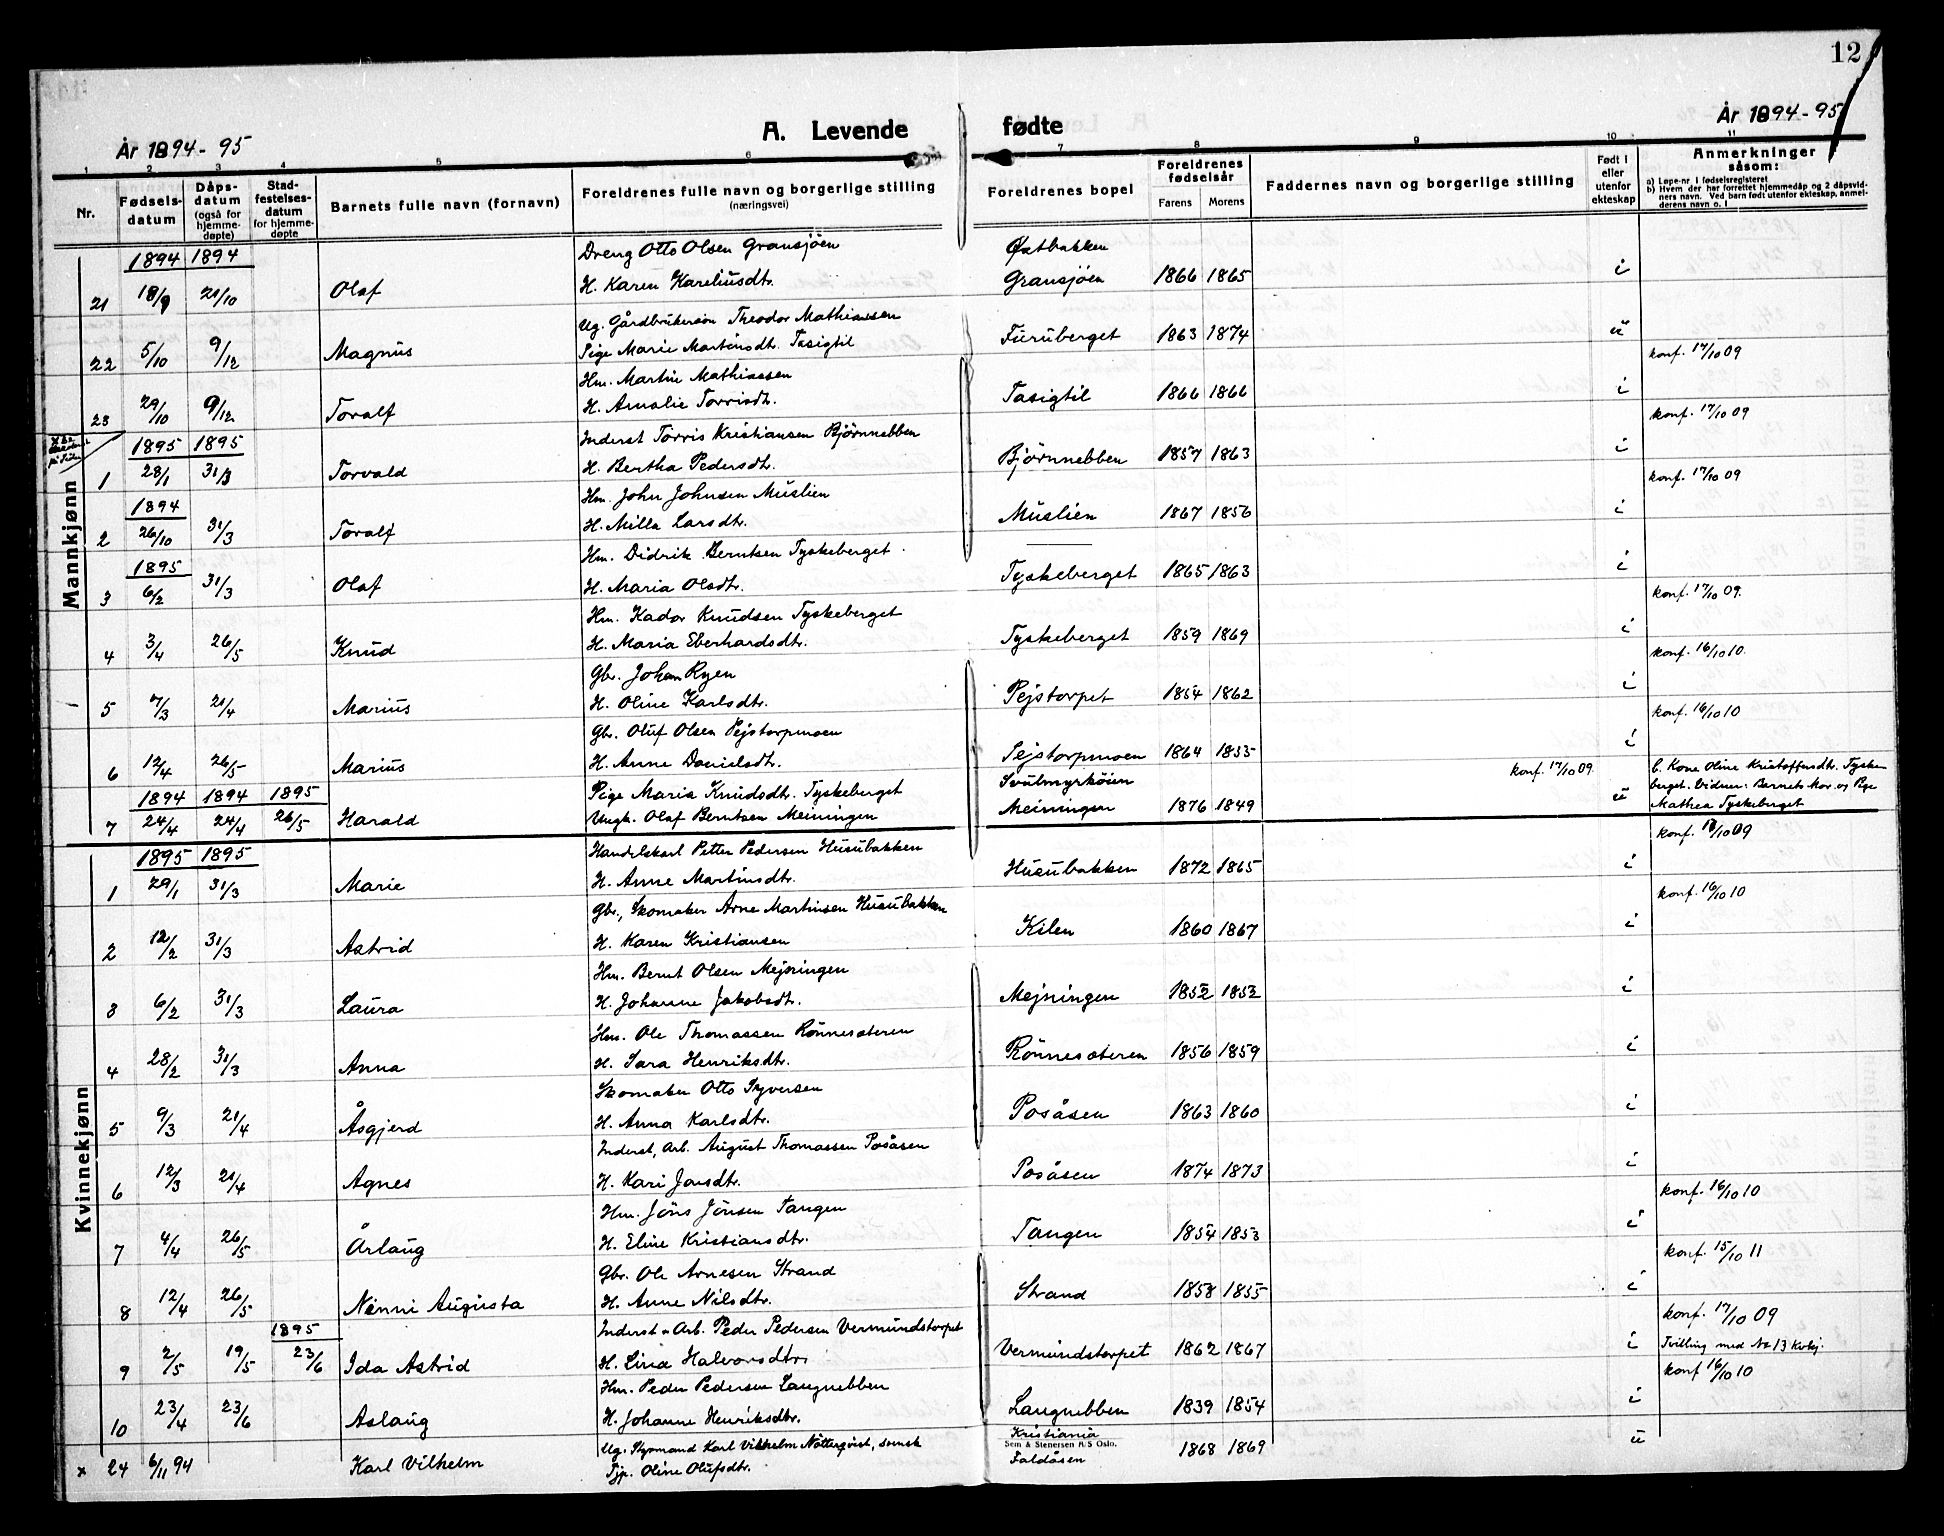 12
År 1894-95
A. Levende
fødte
År 1894-95
1 2 3 4 5 6 7 8 9 10 11
Nr. Fødsels-datum Dåps-datum (også for hjemme-døpte) Stad-festelses-datum for hjemme-døpte Barnets fulle navn (fornavn) Foreldrenes fulle navn og borgerlige stilling (næringsvei) Foreldrenes bopel Foreldrenes fødselsår Farens Morens Faddernes navn og borgerlige stilling Født i eller utenfor ekteskap Anmerkninger såsom:
a) Løpe-nr. i fødselsregisteret
b) Hvem der har forrettet hjemmedåp og 2 dåpsvidners navn. Ved barn født utenfor ekteskap, anmelderens navn o. l
Mannkjønn
1894 1894 Dreng Otto Olsen Gransjöen Östbakken
21 18/9 21/10 Olaf H. Karen Kareliusdtr. Gransjöen 1866 1865 i
Ug. Gårdbrukersön Theodor Mathiassen
22 5/10 9/12 Magnus Pige Marie Martinsdt. Tasigtil Furuberget 1863 1874 u konf. 17/10 09
Hm. Martin Mathiassen
23 29/10 9/12 Toralf H. Amalie Torrisdt. Tasigtil 1866 1866 i konf. 17/10 09
1895 1895 Inderst Torris Kristiansen Björnnebben
1 28/1 31/3 Torvald H. Bertha Pedersdt. Björnnebben 1857 1863 i konf. 17/10 09
1894 Hm. John Johnsen Muslien
2 26/10 31/3 Toralf H. Milla Larsdtr. Muslien 1867 1856 i
1895 Hm. Didrik Berntsen Tyskeberget
3 6/2 31/3 Olaf H. Maria Olsdtr. Tyskeberget 1865 1863 i konf. 17/10 09.
Hm. Kador Knudsen Tyskeberget
4 3/4 26/5 Knud H. Maria Eberhardsdtr. Tyskeberget 1859 1869 i konf. 16/10 10.
Gbr. Johan Ryen
5 7/3 21/4 Marius H. Oline Karlsdtr. Pejstorpet 1854 1862 i konf. 16/10 10
Gbr. Oluf Olsen Pejstorpmoen
6 12/4 26/5 Marius H. Anne Danielsdtr. Pejstorpmoen 1864 1855 i
1894 1894 1895 Pige Maria Knudsdt. Tyskeberget Svulmyrköien konf. 17/10 09. b. Kone Oline Kristoffersdtr. Tyske
7 24/4 24/4 26/5 Harald Ungk. Olaf Berntsen Meiningen Meiningen 1876 1849 u berget. Vidner: Barnets Mor og Pige
Mathea Tyskeberget
Kvinnekjønn
1895 1895 Handelskarl Petter Pedersen Husubakken konf. 18/10 09
1 29/1 31/3 Marie H. Anne Martinsdtr. Husubakken 1872 1865 i
Gbr., Skomaker Arne Martinsen Husubakken konf. 16/10 10
2 12/2 31/3 Astrid H. Karen Kristiansen Kilen 1860 1867 i
Hm. Bernt Olsen Mejningen
3 6/2 31/3 Laura H. Johanne Jakobsdt. Mejningen 1852 1852 i
Hm. Ole Thomassen Rönnesæteren
4 28/2 31/3 Anna H. Sara Henriksdtr. Rönnesæteren 1856 1859 i
Skomaker Otto Syversen
5 9/3 21/4 Åsgjerd H. Anna Karlsdtr. Posåsen 1863 1860 i
Inderst, Arb. August Thomassen Posåsen
6 12/3 21/4 Agnes H. Kari Jonsdtr. Posåsen 1874 1873 i konf. 16/10 10
Hm. Jöns Jönsen Tangen
7 4/4 26/5 Årlaug H. Eline Kristiansdtr. Tangen 1854 1853 i konf. 15/10 11
Gbr. Ole Arnesen Strand
8 12/4 26/5 Ninni Augusta H. Anne Nilsdtr. Strand 1858 1855 i konf. 17/10 09
1895 Inderst, Arb. Peder Pedersen Vermundstorpet
9 2/5 19/5 23/6 Ida Astrid H. Lina Halvorsdtr. Vermundstorpet 1862 1867 i Tvilling med No 13 Kvkj.
Hm. Peder Pedersen Langnebben konf 16/10 10
10 23/4 23/6 Aslaug H. Johanne Henriksdtr. Langnebben 1839 1854 i
Ug. Styrmand Karl Vilhelm Nötterqvist, svensk Kristiania
Sem & Stenersen A/S Oslo.
x 24 6/11 94 Karl Vilhelm Tjp. Oline Olufsdtr. Faldåsen 1868 1869 u